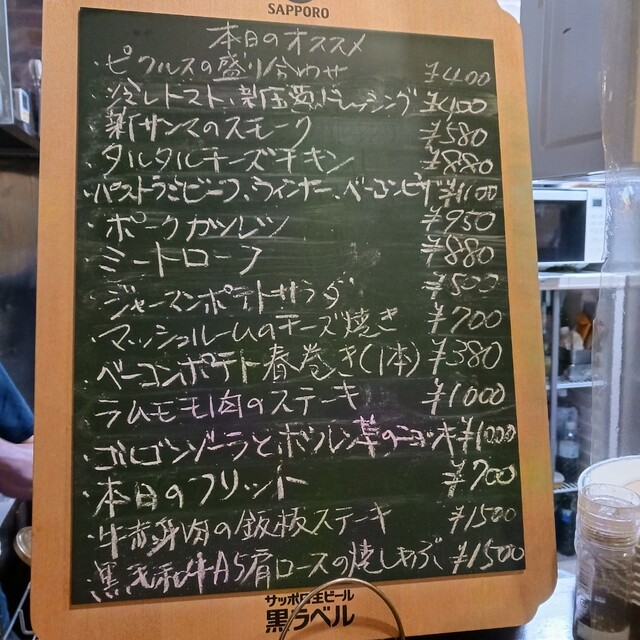 SAPPORO
本日のオススメ
・ピクルスの盛り合わせ ¥400
・冷しトマト、新玉葱ドレッシング ¥400
・新サンマのスモーク ¥580
・タルタルチーズチキン ¥880
・パストラミビーフ、ウィンナー、ベーコンピザ ¥1100
・ポークカツレツ ¥950
・ミートローフ ¥880
・ジャーマンポテトサラダ ¥500
・マッシュルームのチーズ焼き ¥700
・ベーコンポテト春巻き(1本) ¥380
・ラムモモ肉のステーキ ¥1000
・ゴルゴンゾーラとホウレン草のニョッキ ¥1000
・本日のフリット ¥700
・牛赤身肉の鉄板ステーキ ¥1500
・黒毛和牛A5肩ロースの焼しゃぶ ¥1500
サッポロ生ビール
黒ラベル